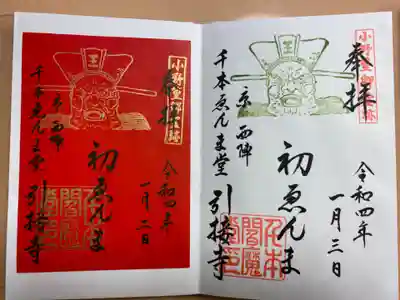 小野篁
奉拝
王
令和四年
一月三日
初ゑんま
京西陣
千本ゑんま堂
引接寺
千本
閻魔
堂印
小野篁
奉拝
王
令和四年
一月二日
初ゑんま
京西陣
千本ゑんま堂
引接寺
千本
閻魔
堂印